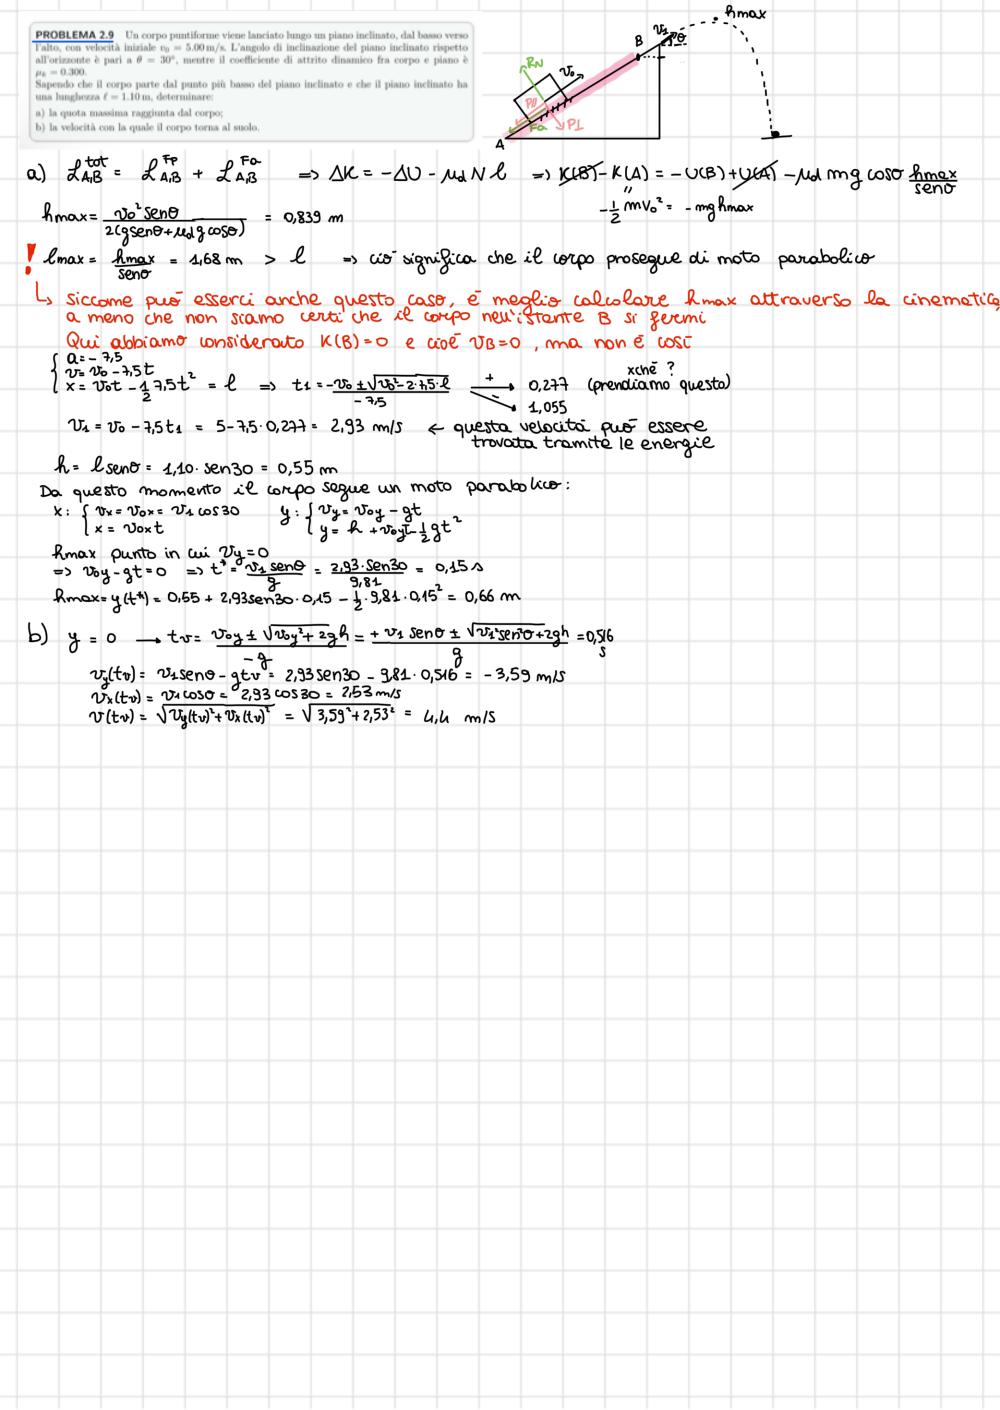 PROBLEMA 2.9 Un corpo puntiforme viene lanciato lungo un piano inclinato, dal basso verso
l'alto, con velocità iniziale v₀ = 5.00 m/s. L'angolo di inclinazione del piano inclinato rispetto
all'orizzonte è pari a θ = 30°, mentre il coefficiente di attrito dinamico fra corpo e piano è
μₖ = 0.300.
Sapendo che il corpo parte dal punto più basso del piano inclinato e che il piano inclinato ha
una lunghezza ℓ = 1.10 m, determinare:
a) la quota massima raggiunta dal corpo;
b) la velocità con la quale il corpo torna al suolo.
hmax
B v₁ θ
RN v₀
P∥
Fa P⊥
A
a) L_A,B^tot = L_A,B^Fp + L_A,B^Fa => ΔK = -ΔU - μd N l => K(B) - K(A) = -U(B) + U(A) - μd mg cosθ hmax/senθ
-1/2 mv₀² = -mghmax
hmax = v₀² senθ / 2(g senθ + μd g cosθ) = 0,839 m
! lmax = hmax/senθ = 1,68 m > l => ciò significa che il corpo prosegue di moto parabolico
↳ siccome può esserci anche questo caso, è meglio calcolare hmax attraverso la cinematica,
a meno che non siamo certi che il corpo nell'istante B si fermi
Qui abbiamo considerato K(B)=0 e cioè vB=0, ma non è così
a = -7,5
v = v₀ - 7,5t
x = v₀t - 1/2 7,5t² = l => t₁ = -v₀ ± √(v₀² - 2·7,5·l) / -7,5 + → 0,277 (prendiamo questo) xché ?
- → 1,055
v₁ = v₀ - 7,5t₁ = 5 - 7,5·0,277 = 2,93 m/s ← questa velocità può essere
trovata tramite le energie
h = l senθ = 1,10 · sen30 = 0,55 m
Da questo momento il corpo segue un moto parabolico:
x: { vx = v₀x = v₁ cos30 y: { vy = v₀y - gt
x = v₀xt y = h + v₀yt - 1/2 gt²
hmax punto in cui vy = 0
=> v₀y - gt = 0 => t* = v₁ senθ / g = 2,93·sen30 / 9,81 = 0,15 s
hmax = y(t*) = 0,55 + 2,93sen30·0,15 - 1/2·9,81·0,15² = 0,66 m
b) y = 0 → tv = v₀y ± √(v₀y² + 2gh) / -g = + v₁ senθ ± √(v₁²sen²θ + 2gh) / g = 0,516 s
vy(tv) = v₁senθ - gtv = 2,93sen30 - 9,81·0,516 = -3,59 m/s
vx(tv) = v₁cosθ = 2,93 cos30 = 2,53 m/s
v(tv) = √(vy(tv)² + vx(tv)²) = √(3,59² + 2,53²) = 4,4 m/s